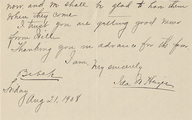 now, and we shall be glad to have them
when they come.
I trust you are getting good news
from
Thanking you in advance for the
I am, very sincerely,
Ida M.
Today
Aug 21, 1908